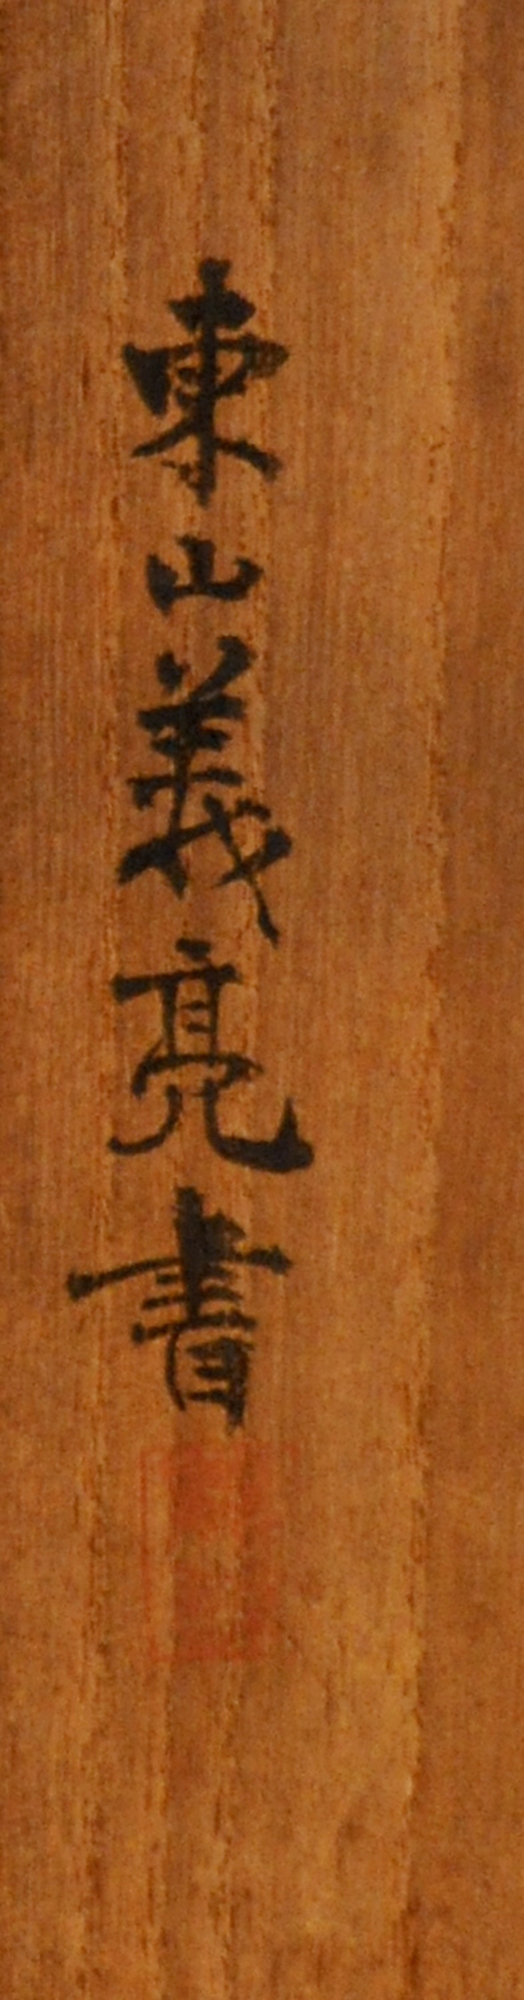 東山義亮書